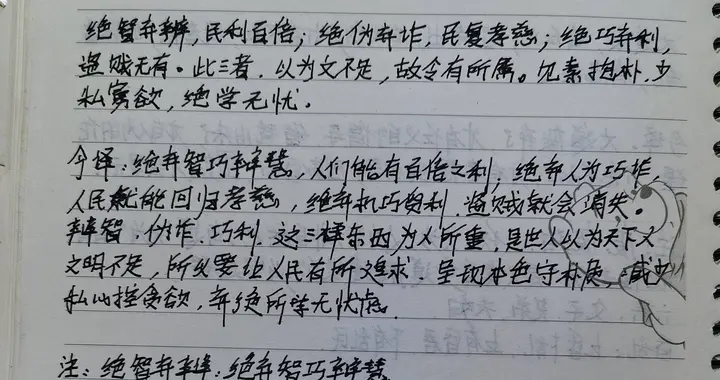 绝智弃辨，民利百倍；绝伪弃诈，民复孝慈；绝巧弃利，
盗贼无有。此三者，以为文不足，故令有所属。见素抱朴，少
私寡欲，绝学无忧。
今译：绝弃智巧辩慧，人们能有百倍之利，绝弃人为巧诈，
人民就能回归孝慈，绝弃机巧货利，盗贼就会消失。
辩智、伪诈、巧利，这三样东西为人所重，是世人以为天下之
文明不足，所以要让人民有所追求。呈现本色守朴质，减少
私心控贪欲，弃绝所学无忧虑。
注：绝智弃辩：绝弃智巧辩慧